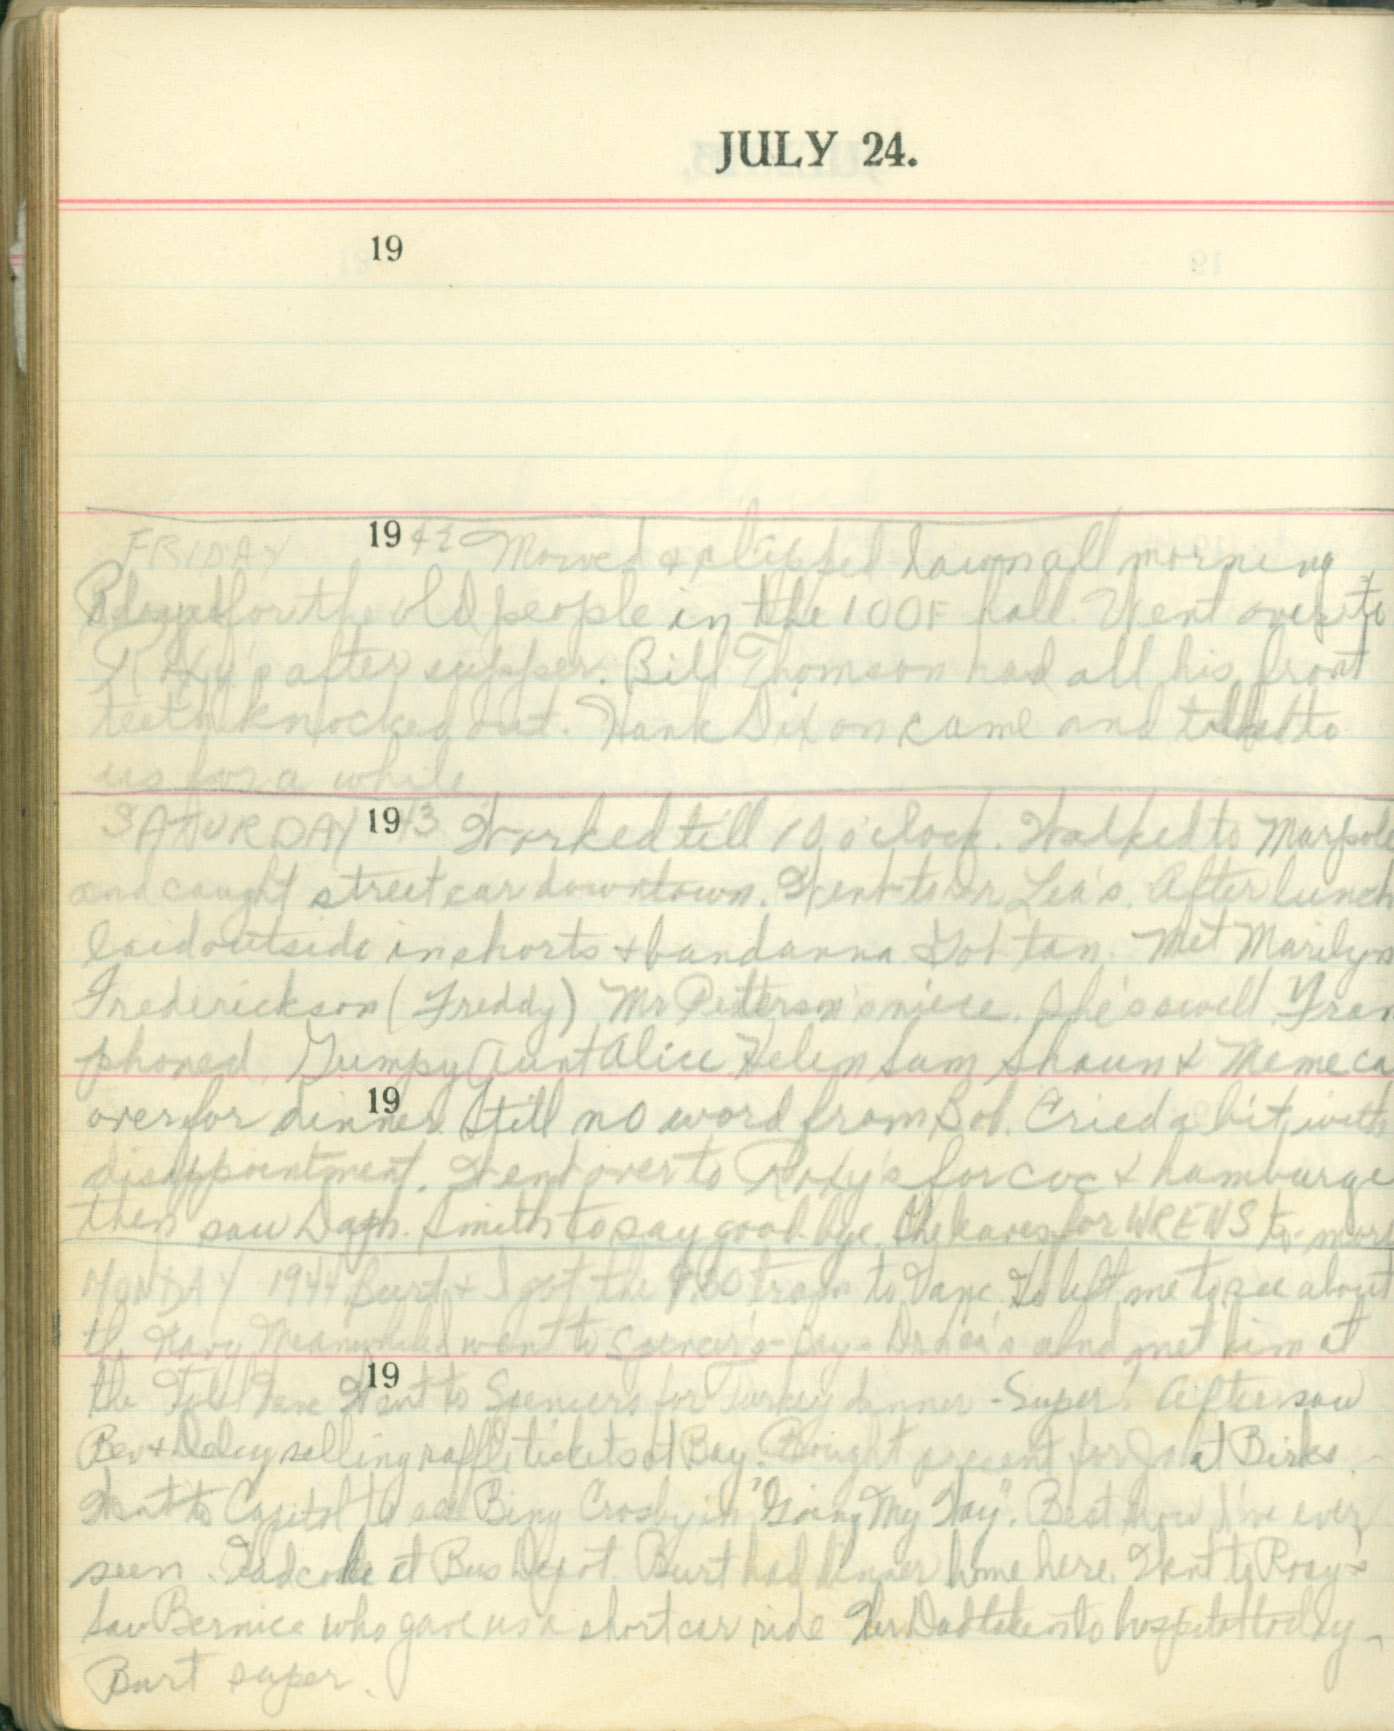 JULY 24.
19
FRIDAY 1942 Mowed & clipped lawn all morning
Played for the old people in the IOOF hall. Went over to
Roxy's after supper. Bill Thomson had all his front
teeth knocked out. Hank Dixon came and talked to
us for a while
SATURDAY 1943 Worked till 10 o'clock. Walked to Marpole
and caught street car downtown. Went to Dr Lea's. After lunch
laid outside in shorts & bandanna Got tan. Met Marilyn
Frederickson (Freddy) Mr Petterson's niece. She's swell. Fran
phoned. Gumpy Aunt Alice Helen Sum Shaun & Meme ca
19
over for dinner. Still no word from Bob. Cried a bit with
disappointment. Went over to Roxy's for coc & hamburge
then saw Smith to say good-bye. She leaves for WRENS to-morr
MONDAY 1944 Burt & I got the tram to Vanc. He left me to see about
the Navy Meanwhile I went to Spencer's - Bay - and met him at
19
the Vanc Went to Spencers for Turkey dinner - Super! After saw
Bev & selling raffle tickets at Bay. Bought present for Jo at Birks
Went to Capitol to see Bing Crosby in "Going My Way". Best show I've ever
seen. Had coke at Bus Depot. Burt had dinner home here. Went to Roxy's
Saw Bernice who gave us a short car ride Her Dad taken to hospital today -
Burt super.